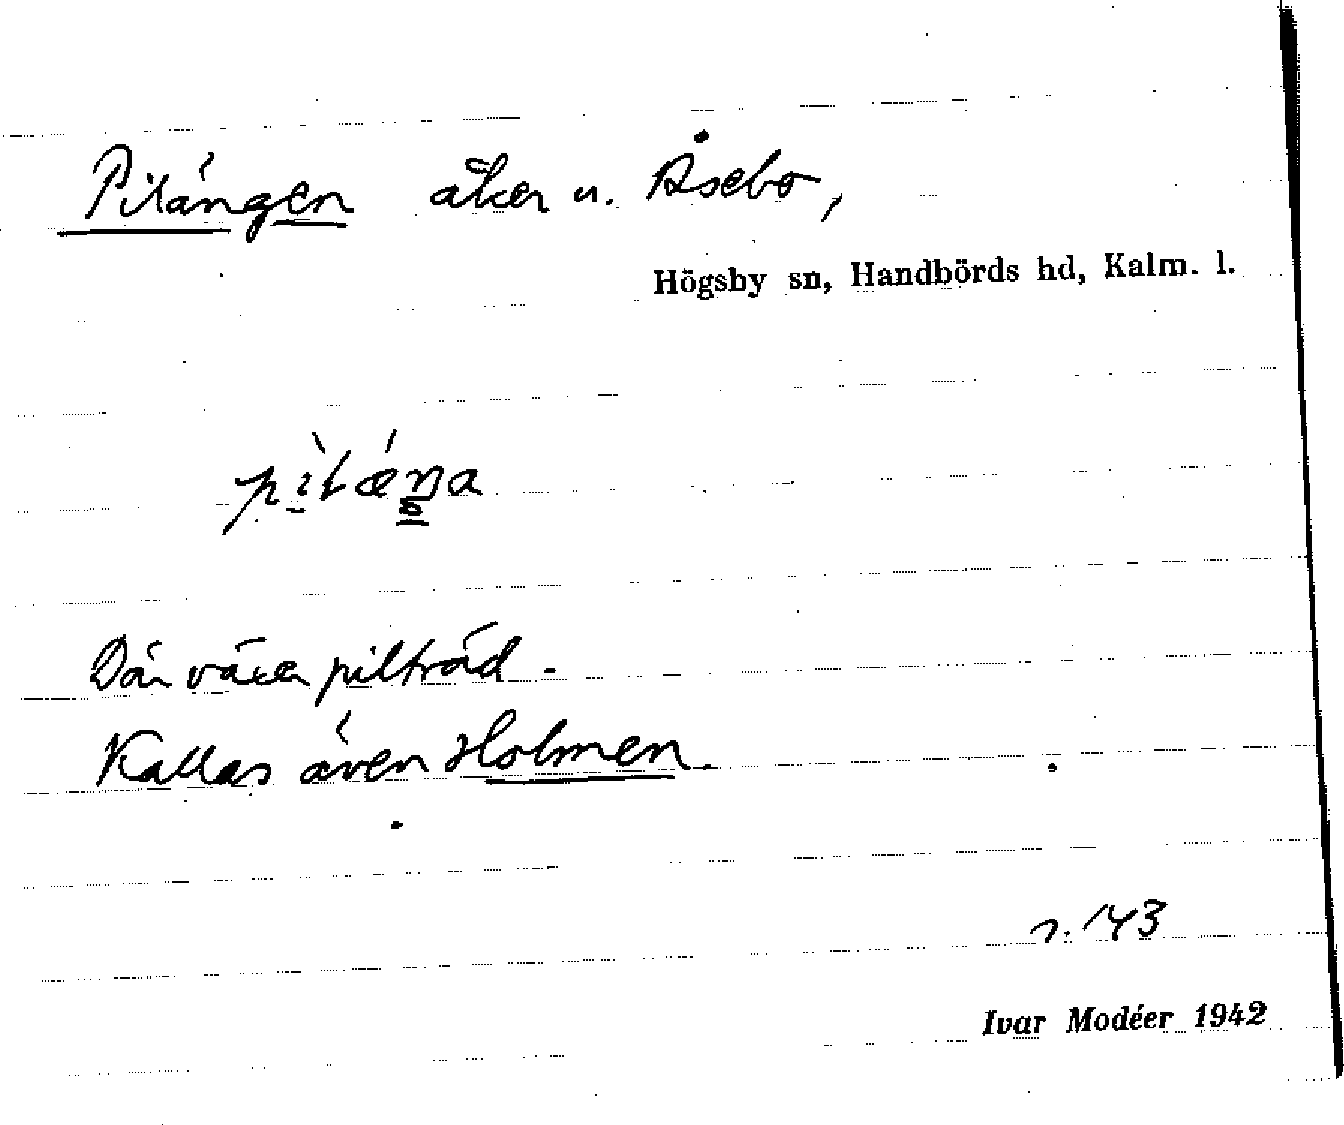 Pilängen åker u. Åsebo,
Högsby sn, Handbörds hd, Kalm. l.
pìlǽŋa
Där växer pilträd.
Kallas även Holmen.
r. 143
Ivar Modéer 1942